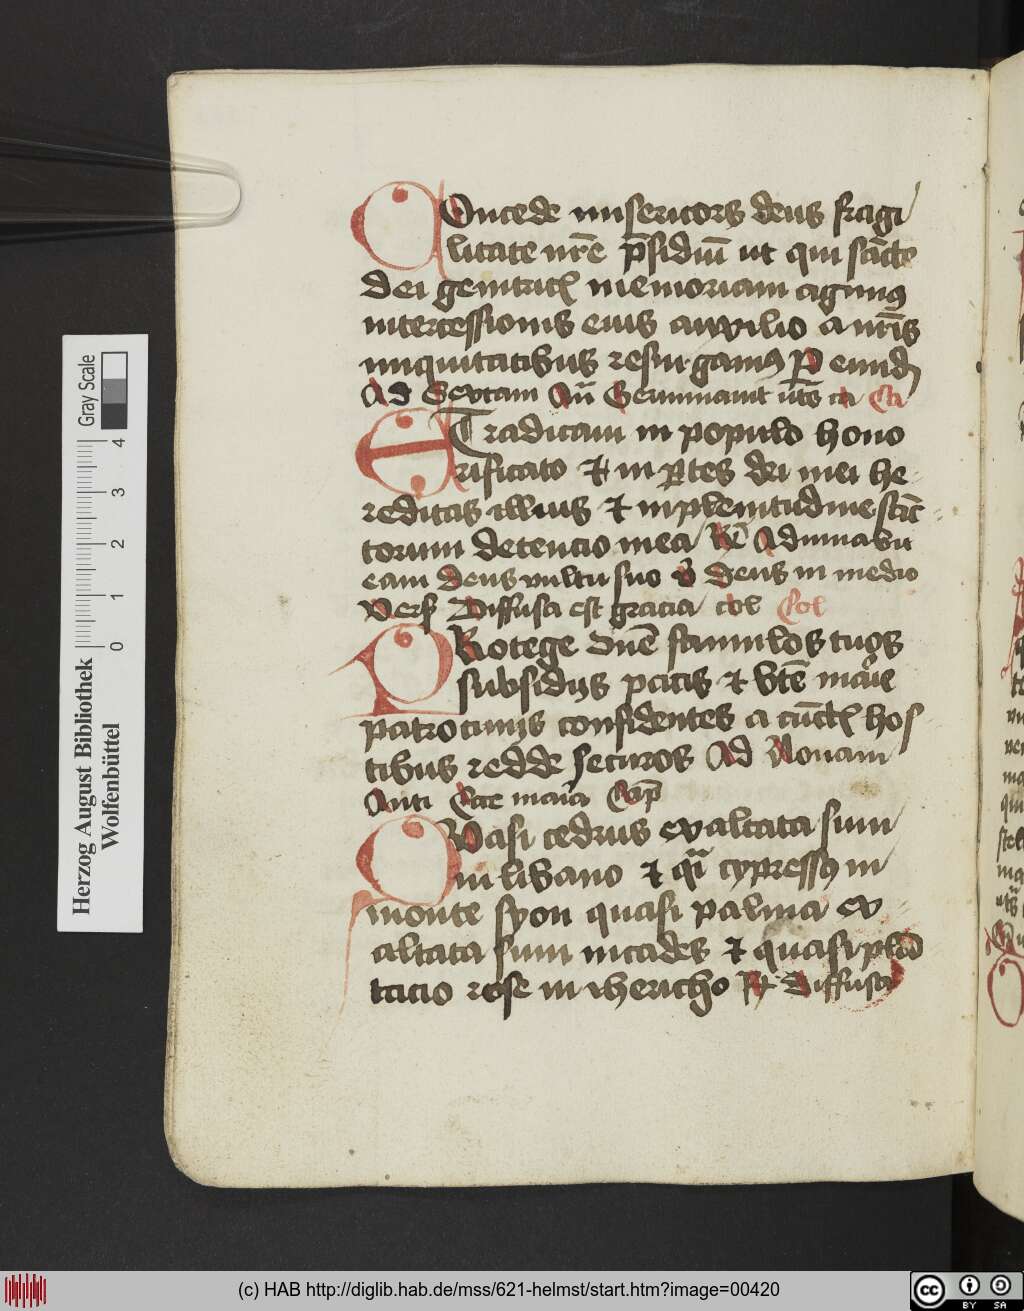 COncede misericors deus fragi
litate nr̄e p̄sidiū ut qui sāctē
dei genitricꝭ memoriam agimꝰ
intercessionis eius auxilio a nr̄is
iniquitatibus resurgamꝰ P eūmd
Ad Sextam Añ Germinauit
ETradicaui in populo hono
rificato ⁊ in ꝑtes dei mei he
reditas illius ⁊ in plenitudine sāc
torum detencio mea Adiuuabit
eam deus vultu suo v̄ deus in medio
vers Diffusa est gracia col Col
PRotege dn̄e famulos tuos
subsidijs pacis ⁊ btē mar̄ie
patrocinijs confidentes a cūctꝭ hos
tibus redde securos Ad Nonam
Anti Ecce maria Cap̄
QVasi cedrus exaltata sum
in libano ⁊ q̄si cypressꝰ in
monte syon quasi palma ex
altata sum in cades ⁊ quasi plā
tacio rose in ihericho Diffusa
Herzog August Bibliothek
Wolfenbüttel
Gray Scale
0 1 2 3 4
(c) HAB http://diglib.hab.de/mss/621-helmst/start.htm?image=00420
cc BY SA